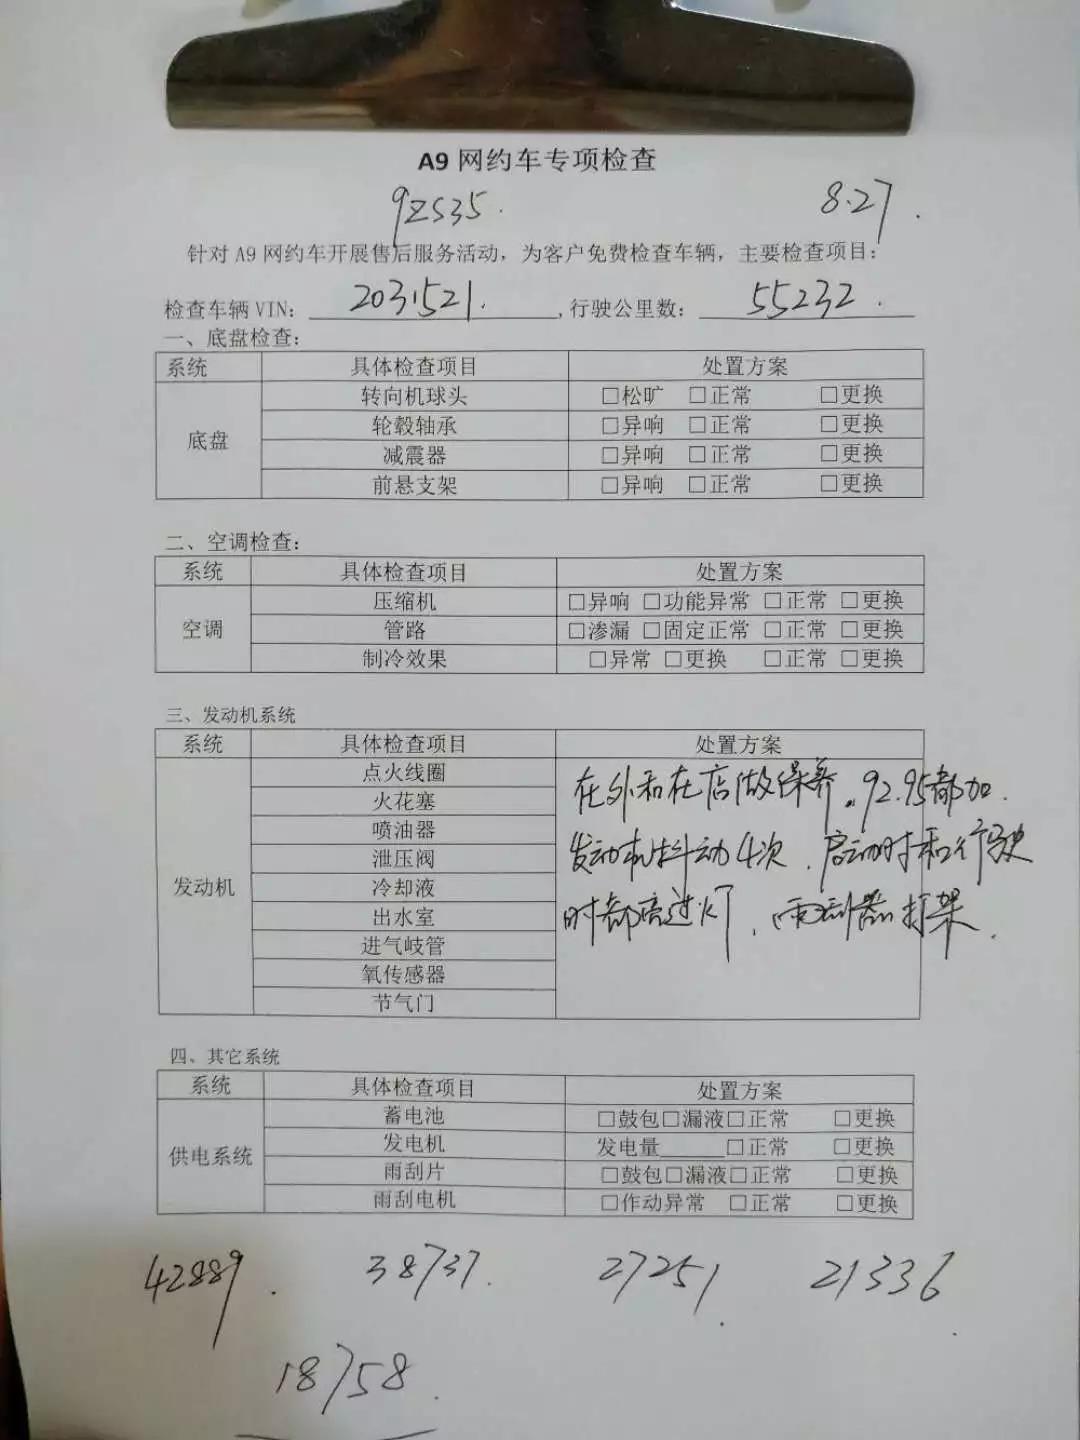 A9网约车专项检查
9ZS35. 8.27.
针对A9网约车开展售后服务活动，为客户免费检查车辆，主要检查项目：
检查车辆VIN：2031521.，行驶公里数：55232.
一、底盘检查：
系统 具体检查项目 处置方案
底盘
转向机球头 □松旷 □正常 □更换
轮毂轴承 □异响 □正常 □更换
减震器 □异响 □正常 □更换
前悬支架 □异响 □正常 □更换
二、空调检查：
系统 具体检查项目 处置方案
空调
压缩机 □异响 □功能异常 □正常 □更换
管路 □渗漏 □固定正常 □正常 □更换
制冷效果 □异常 □更换 □正常 □更换
三、发动机系统
系统 具体检查项目 处置方案
发动机
点火线圈
火花塞
喷油器
泄压阀
冷却液
出水室
进气岐管
氧传感器
节气门
在外和在店做保养。92.95都加.
发动机抖动4次.启动时和行驶
时都亮过灯.雨刮器打架.
四、其它系统
系统 具体检查项目 处置方案
供电系统
蓄电池 □鼓包□漏液□正常 □更换
发电机 发电量______□正常 □更换
雨刮片 □鼓包□漏液□正常 □更换
雨刮电机 □作动异常 □正常 □更换
42889. 38737. 27251. 21336.
18758.